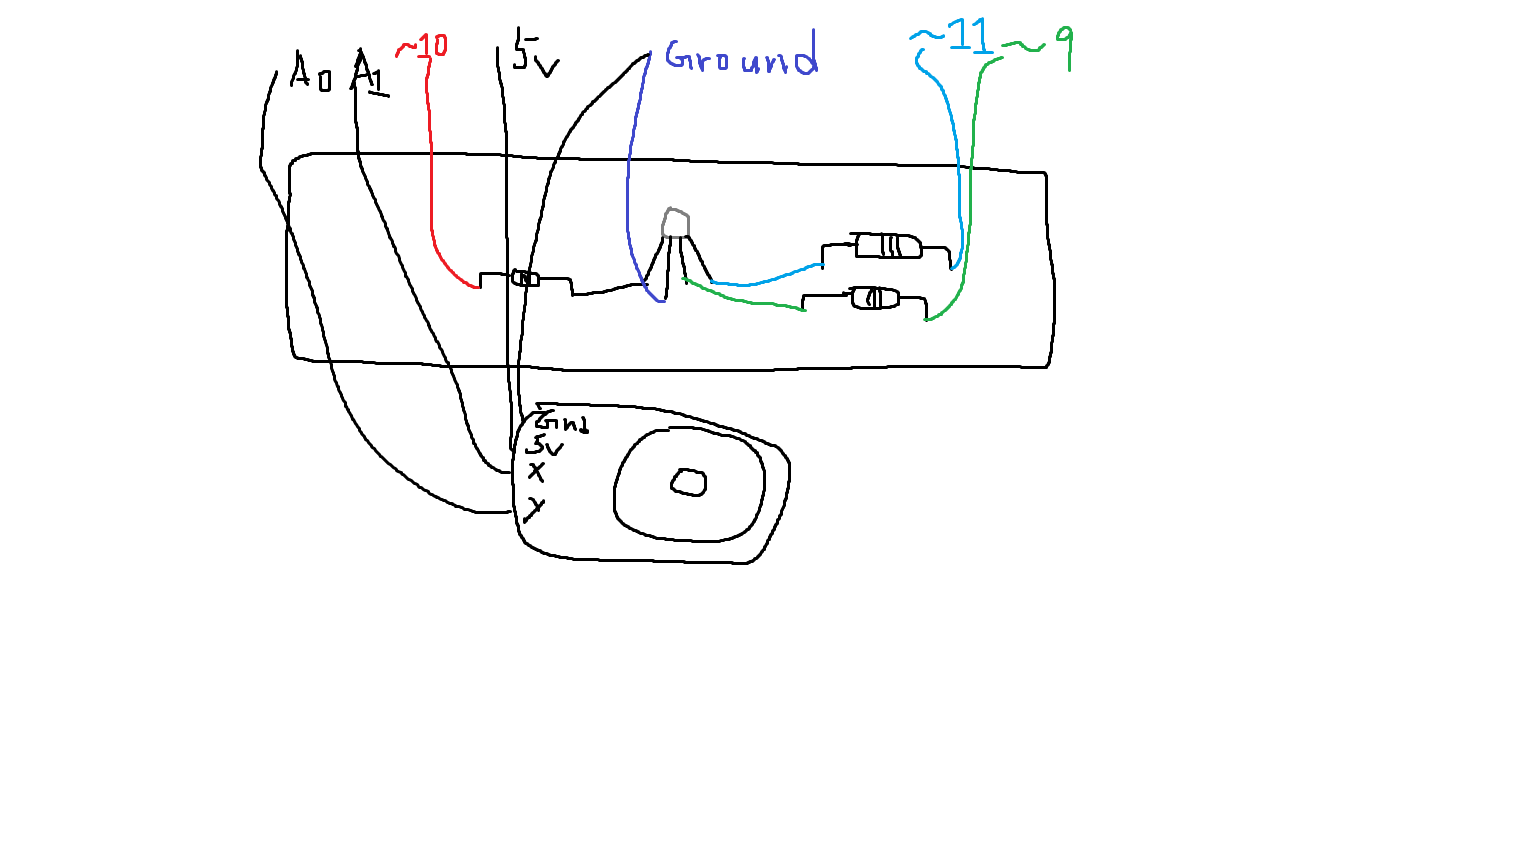 A0 A1 ~10 5v Ground ~11 ~9
Gnd
5v
X
y